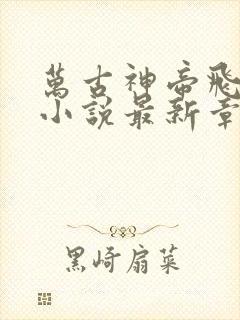 萬古神帝飛
小說最新章
黑崎扇菜